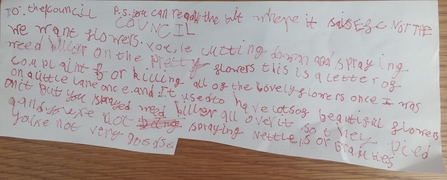 TO. the council P.S. you can read the bit where it says NOT THE
COUNCIL
We want flowers. you're cutting down and spraying
weed killer on the Pretty flowers this is a letter of
complaint for killing all of the lovely flowers once I was
on a little lane once and It used to have lots of beautiful flowers
on it but you sprayed weed killer all over it so they Died
and you're not spraying nettles or branches
you're not very good